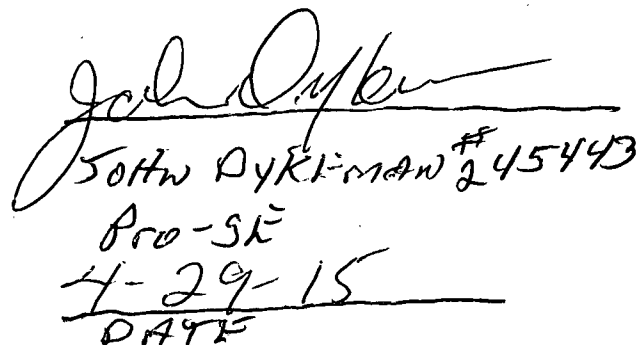 John Dykeman
JOHN DYKEMAN #245443
PRO-SE
4-29-15
DATE